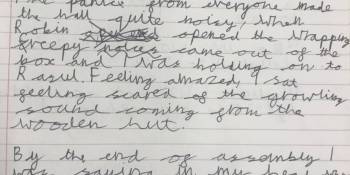 panice from everyone made
the hall quite noisy. When
Robin opened the wrapping
creepy noises came out of the
box and I was holding on to
Raoul. Feeling amazed, I sat
feeling scared of the growling
sound coming from the
wooden hut.
By the end of assembly I
was saying in my head the